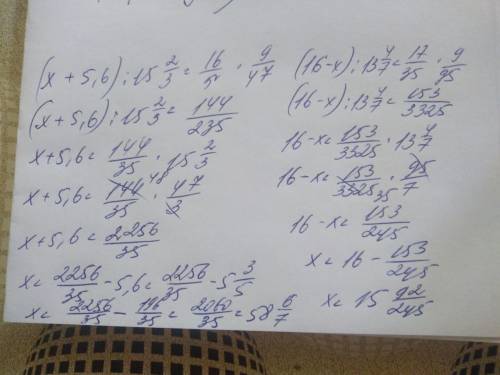 (x + 5,6) : 15 2/3 = 16/5 · 9/47
(x + 5,6) : 15 2/3 = 144/235
x + 5,6 = 144/35 · 15 2/3
x + 5,6 = 144/35 48 · 47/3
x + 5,6 = 2256/35
x = 2256/35 - 5,6 = 2256/35 - 5 3/5
x = 2256/35 - 196/35 = 2060/35 = 58 6/7
(16 - x) : 13 4/7 = 17/35 · 9/95
(16 - x) : 13 4/7 = 153/3325
16 - x = 153/3325 · 13 4/7
16 - x = 153/3325 35 · 95/7
16 - x = 153/245
x = 16 - 153/245
x = 15 92/245